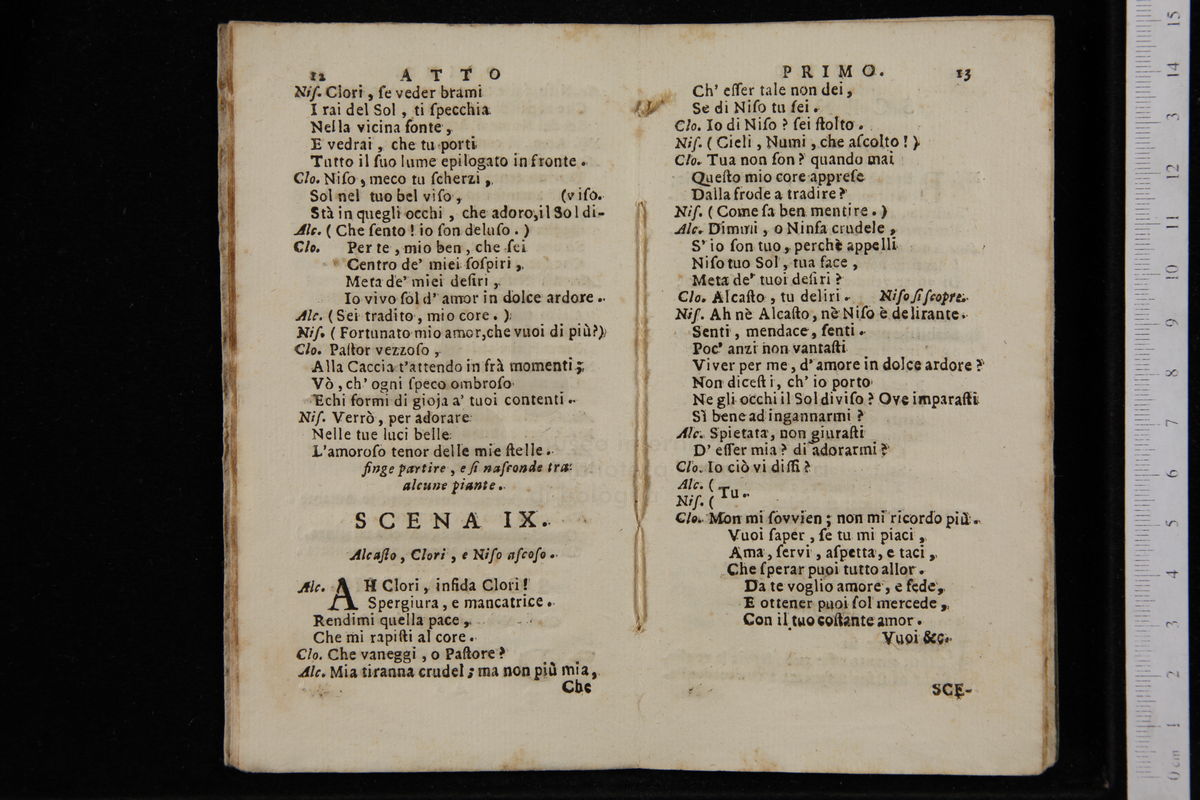 12 ATTO
Niſ. Clori, ſe veder brami
I rai del Sol, ti ſpecchia
Nella vicina fonte,
E vedrai, che tu porti
Tutto il ſuo lume epilogato in fronte.
Clo. Niſo, meco tu ſcherzi,
Sol nel tuo bel viſo, (viſo.
Stà in quegli occhi, che adoro, il Sol di-
Alc. (Che ſento! io ſon deluſo.)
Clo. Per te, mio ben, che ſei
Centro de' miei ſoſpiri,
Meta de' miei deſiri,
Io vivo ſol d' amor in dolce ardore.
Alc. (Sei tradito, mio core.)
Niſ. (Fortunato mio amor, che vuoi di più?)
Clo. Paſtor vezzoſo,
Alla Caccia t'attendo in frà momenti;
Vò, ch' ogni ſpeco ombroſo
Echi formi di gioja a' tuoi contenti.
Niſ. Verrò, per adorare
Nelle tue luci belle
L'amoroſo tenor delle mie ſtelle.
finge partire, e ſi naſconde tra
alcune piante.
SCENA IX.
Alcaſto, Clori, e Niſo aſcoſo.
Alc. AH Clori, infida Clori!
Spergiura, e mancatrice.
Rendimi quella pace,
Che mi rapiſti al core.
Clo. Che vaneggi, o Paſtore?
Alc. Mia tiranna crudel; ma non più mia,
Che
PRIMO. 13
Ch' eſſer tale non dei,
Se di Niſo tu ſei.
Clo. Io di Niſo? ſei ſtolto.
Niſ. (Cieli, Numi, che aſcolto!)
Clo. Tua non ſon? quando mai
Queſto mio core appreſe
Dalla frode a tradire?
Niſ. (Come ſa ben mentire.)
Alc. Dimmi, o Ninfa crudele,
S' io ſon tuo, perchè appelli
Niſo tuo Sol, tua face,
Meta de' tuoi deſiri?
Clo. Alcaſto, tu deliri. Niſo ſi ſcopre.
Niſ. Ah nè Alcaſto, nè Niſo è delirante.
Senti, mendace, ſenti.
Poc' anzi non vantaſti
Viver per me, d' amore in dolce ardore?
Non diceſti, ch' io porto
Ne gli occhi il Sol diviſo? Ove imparaſti
Sì bene ad ingannarmi?
Alc. Spietata, non giuraſti
D' eſſer mia? di adorarmi?
Clo. Io ciò vi diſſi?
Alc. (
Tu.
Niſ. (
Clo. Mon mi ſovvien; non mi ricordo più.
Vuoi ſaper, ſe tu mi piaci,
Ama, ſervi, aſpetta, e taci,
Che ſperar puoi tutto allor.
Da te voglio amore, e fede,
E ottener puoi ſol mercede,
Con il tuo coſtante amor.
Vuoi &c.
SCE-